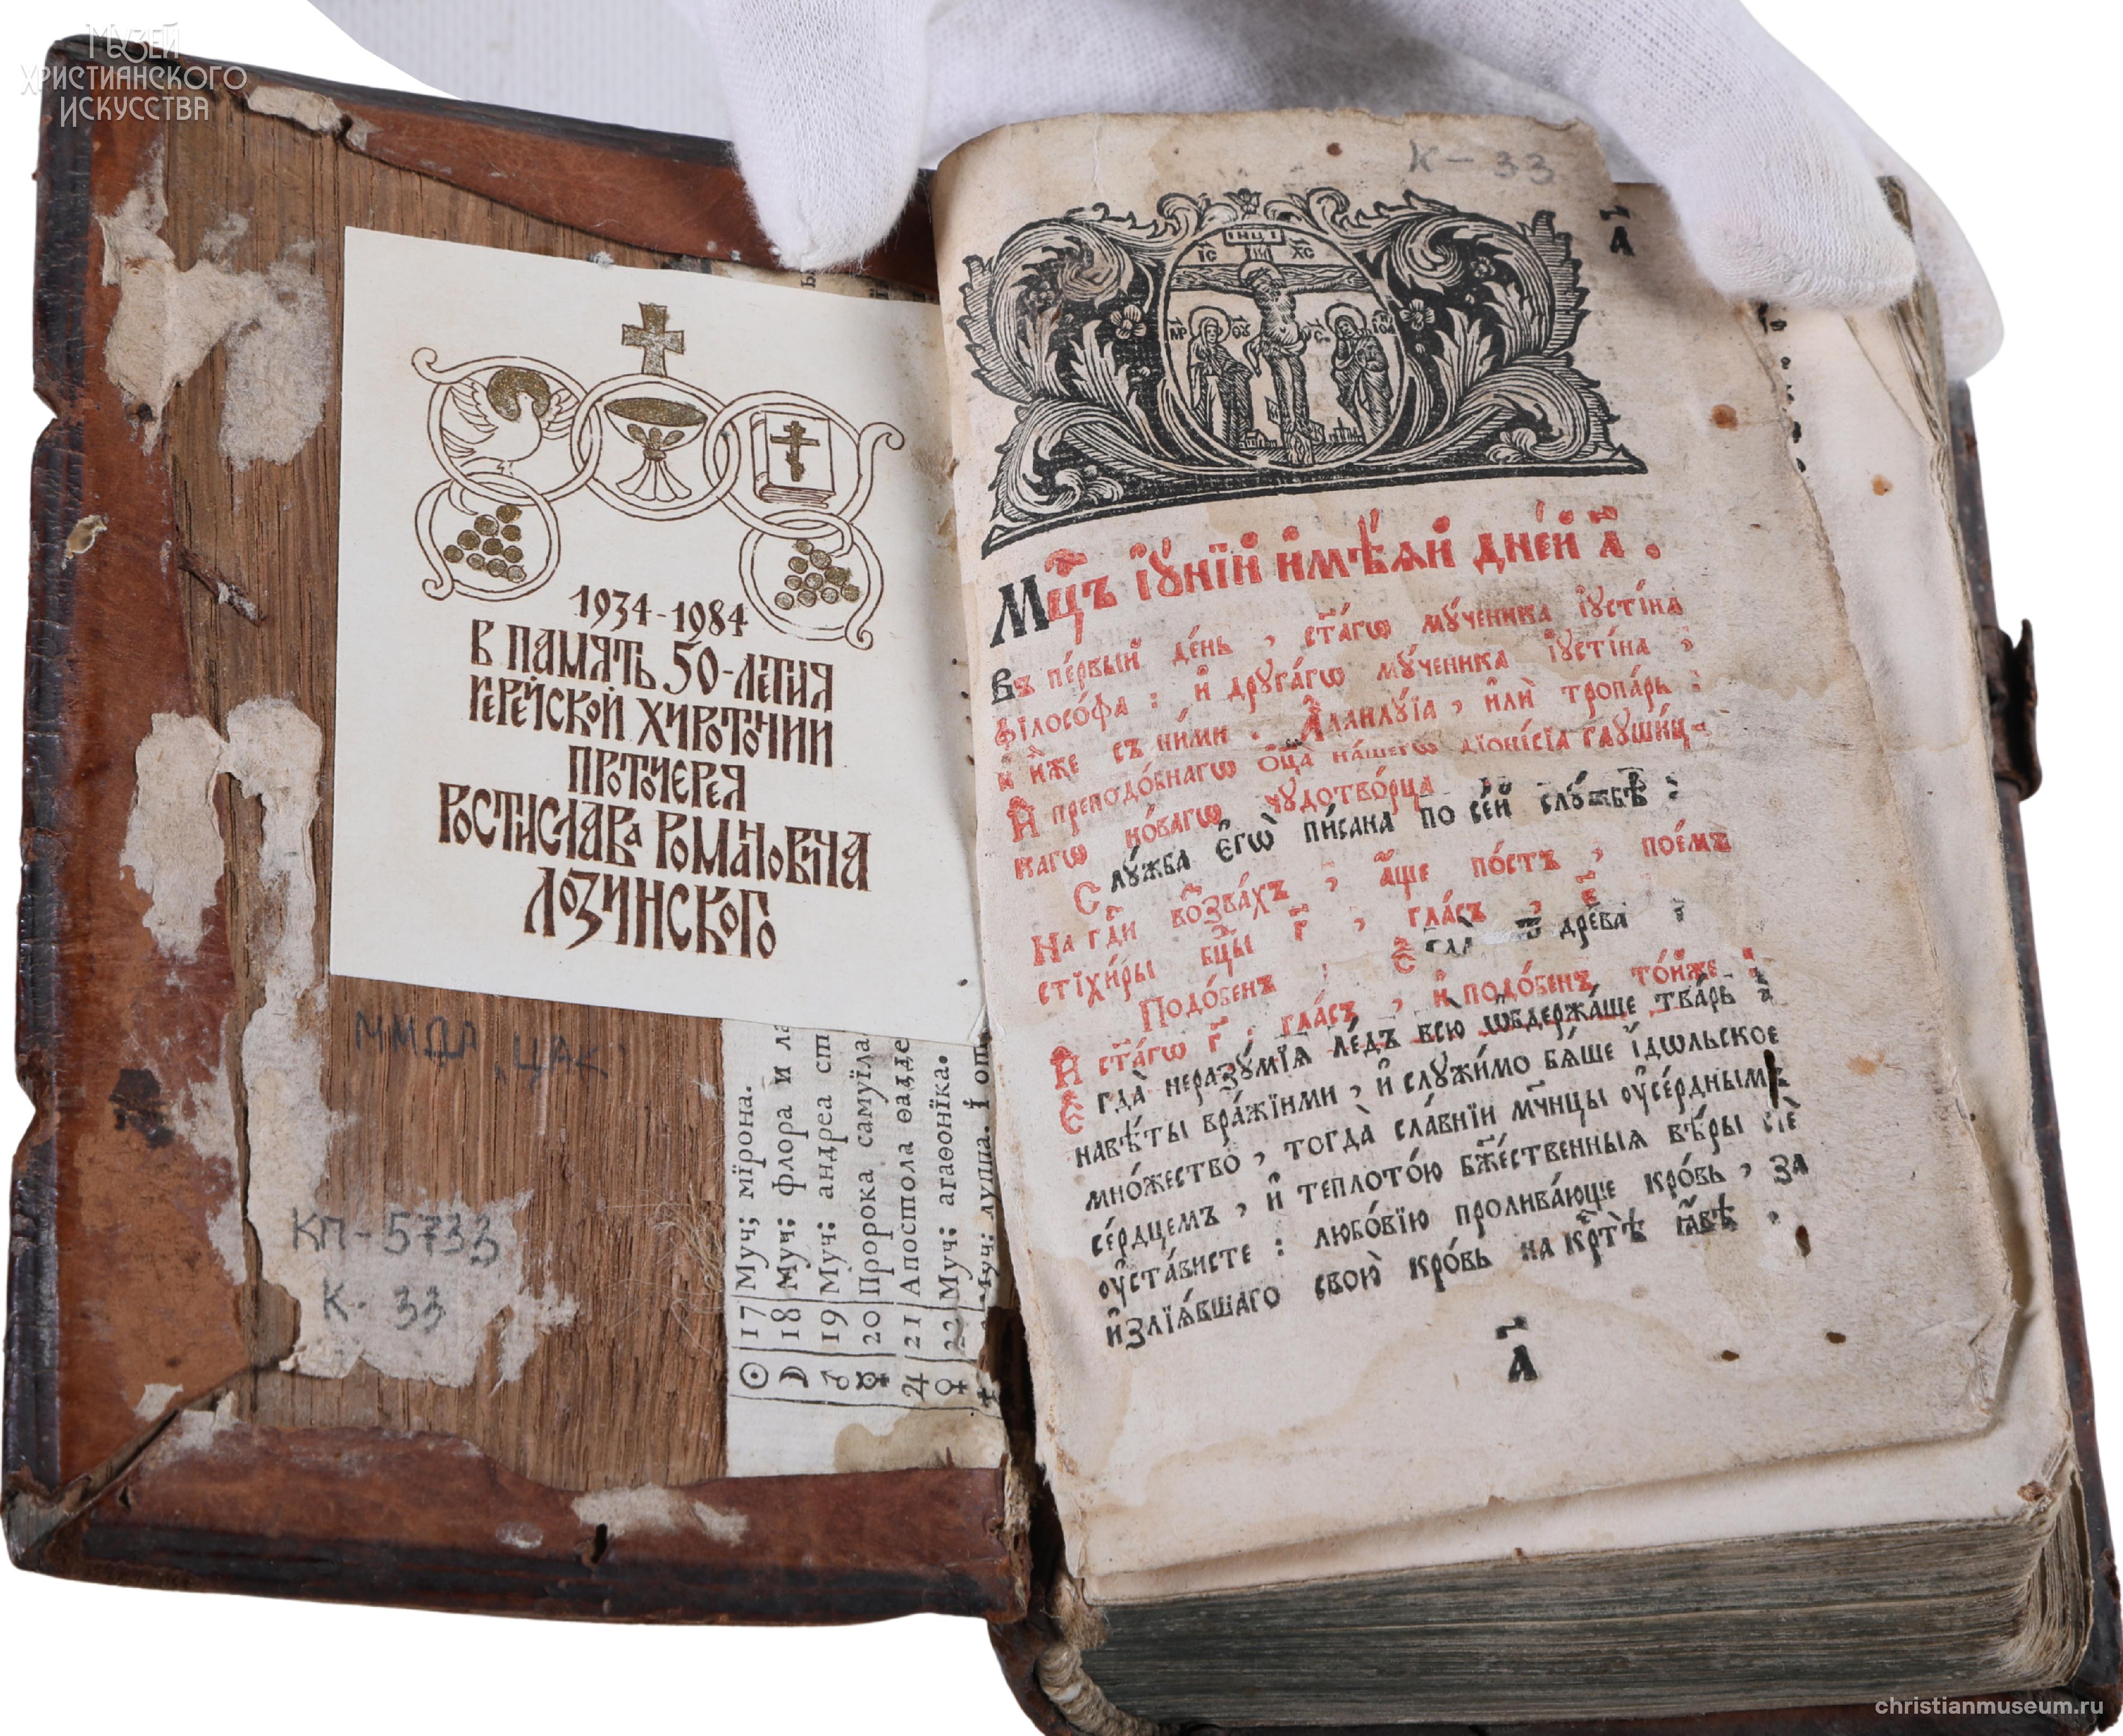 МУЗЕЙ
ХРИСТИАНСКОГО
ИСКУССТВА
1934-1984
В ПАМЯТЬ 50-ЛЕТИЯ
ИЕРЕЙСКОЙ ХИРОТОНИИ
ПРОТОИЕРЕЯ
РОСТИСЛАВА РОМАНОВИЧА
ЛОЗИНСКОГО
ММДА, ЦАК
КП-5733
К-33
☉ 17 Муч; мѵрона.
☽ 18 Муч: флора и ла
♂ 19 Муч: андреа ст
☿ 20 Пророка самуїла
♃ 21 Апостола ѳадде
♀ 22 Муч: агаѳонїка.
Муч: луппа. І
К-33
а҃
ІНЦІ
І҃С Х҃С
Мц҃ъ і҆ꙋ́нїй и҆мѣ́ѧй дне́й л҃.
Въ пе́рвый де́нь, ст҃а́гѡ мꙋ́ченика і҆ꙋсті́на
фїлосо́фа: и҆ дрꙋга́гѡ мꙋ́ченика і҆ꙋсті́на,
и҆ и҆́же съ ни́ми. А҆ллилꙋ́їа, и҆лѝ тропа́рь:
И҆ преподо́бнагѡ ѻ҆ц҃а̀ на́шегѡ дїонѵ́сїа глꙋши́ц-
кагѡ но́вагѡ чꙋдотво́рца
Слꙋ́жба є҆гѡ̀ пи́сана по се́й слꙋ́жбѣ:
На гдⷭ҇и возва́хъ, а҆́ще по́стъ, пое́мъ
стїхи́ры бцⷣы г҃, гла́съ, є҃
Подо́бенъ, дре́ва:
И҆ ст҃а́гѡ г҃, гла́съ, и҆ подо́бенъ то́йже:
Є҆гда̀ неразꙋ́мїѧ ле́дъ всю̀ ѡ҆бдержа́ше тва́рь
навѣ́ты вра́жїими, и҆ слꙋжи́мо бѧ́ше і҆́дѡльское
мно́жество, тогда̀ сла́внїи мч҃нцы ᲂу҆се́рднымъ
се́рдцемъ, и҆ теплото́ю бж҃е́ственныѧ вѣ́ры сїѐ
ᲂу҆ста́висте: любо́вїю пролива́юще кро́вь, за
и҆злїѧ́вшаго свою̀ кро́вь на крⷭ҇тѣ̀ ꙗ҆́вѣ,
а҃
christianmuseum.ru